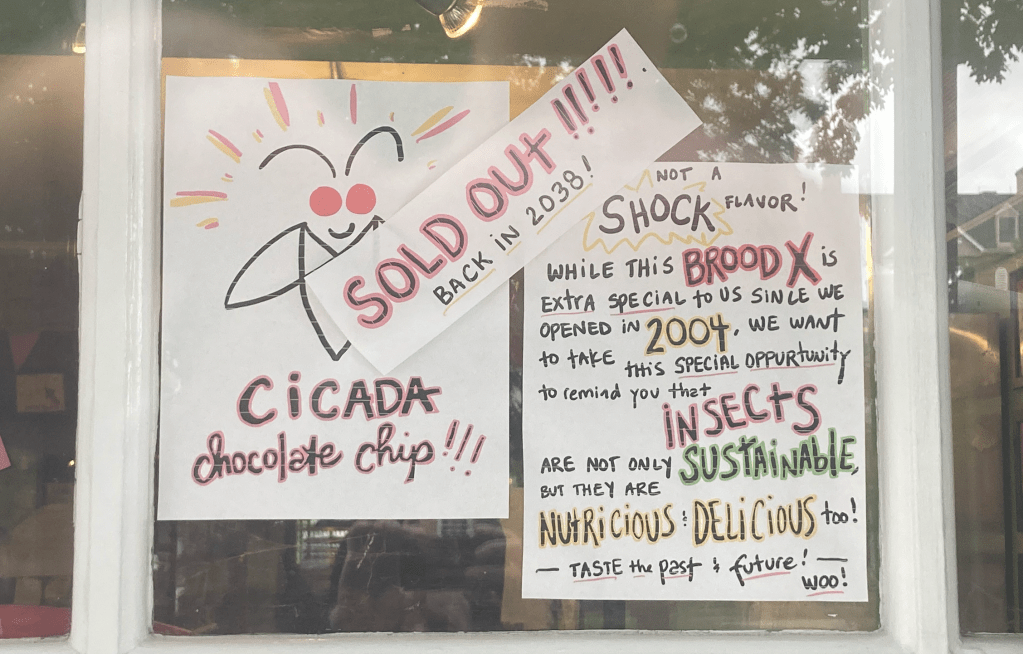 SOLD OUT!!!!!.
BACK IN 2038!
CiCADA
chocolate chip!!!
NOT A
SHOCK FLAVOR!
WHILE THIS BROOD X iS
EXtRA SPECIAL to US SINCE WE
OPENED iN 2004, WE WANT
to tAKE tHiS SPECIAL OPPURtUNitY
to remind you that
iNSECtS
ARE NOT ONLY SUSTAiNAbLE,
BUT THEY ARE
NUtRiCiOUS & DELiCiOUS too!
— TASTE the past & future! —
WOO!